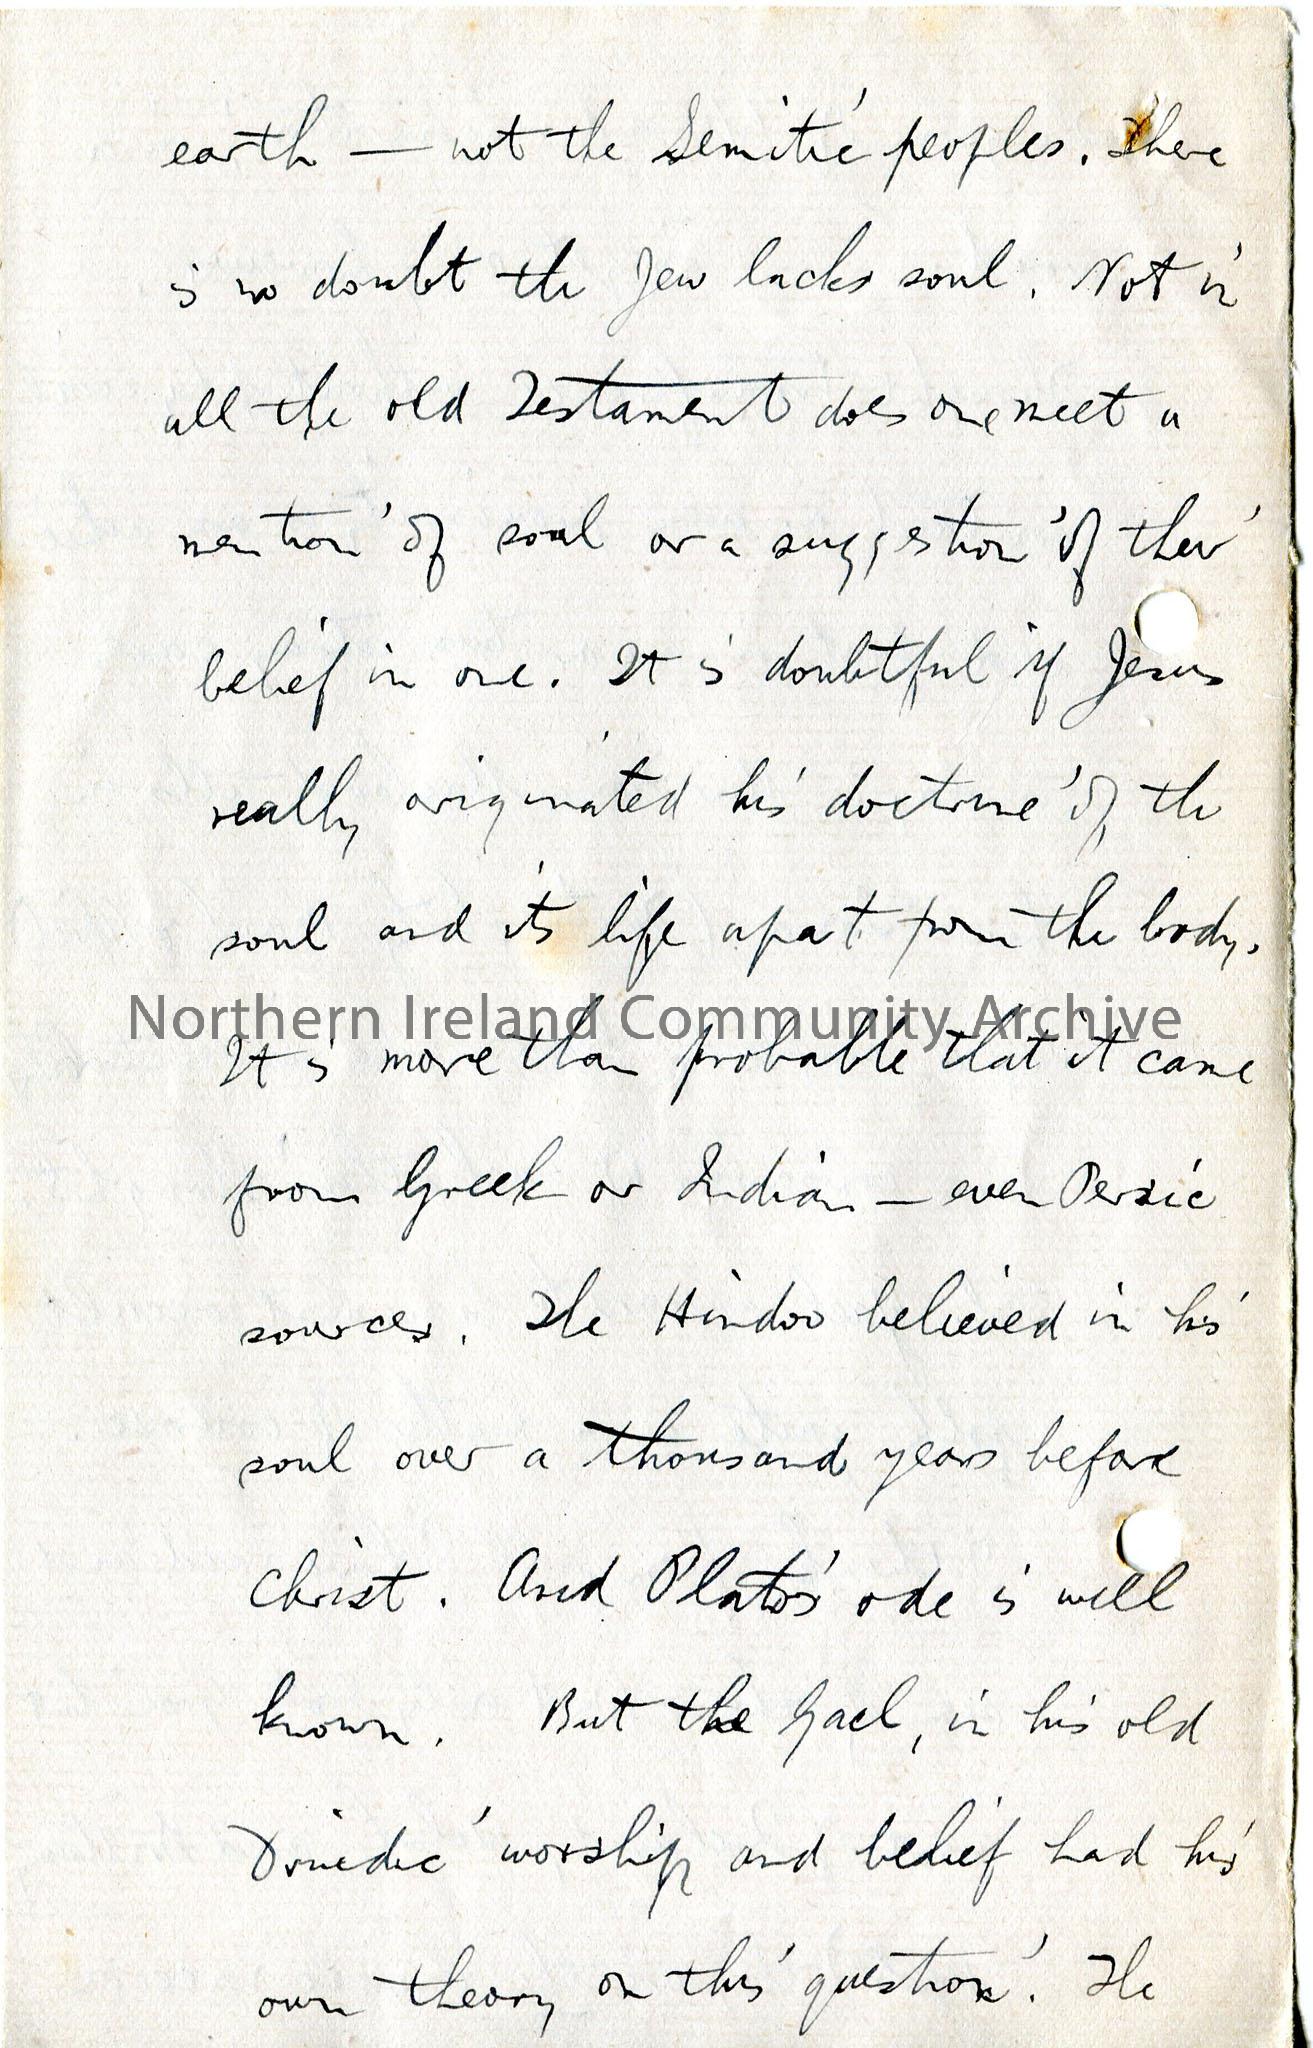 earth — not the Semitic peoples. There
is no doubt the Jew lacks soul. Not in
all the old Testament does one meet a
mention of soul or a suggestion of their
belief in one. It is doubtful if Jesus
really originated his doctrine of the
soul and its life apart from the body.
Northern Ireland Community Archive
It is more than probable that it came
from Greek or Indian — even Persic
sources. The Hindoo believed in his
soul over a thousand years before
Christ. And Plato's ode is well
known. But the Gael, in his old
Druedic worship and belief had his
own theory on this question. The